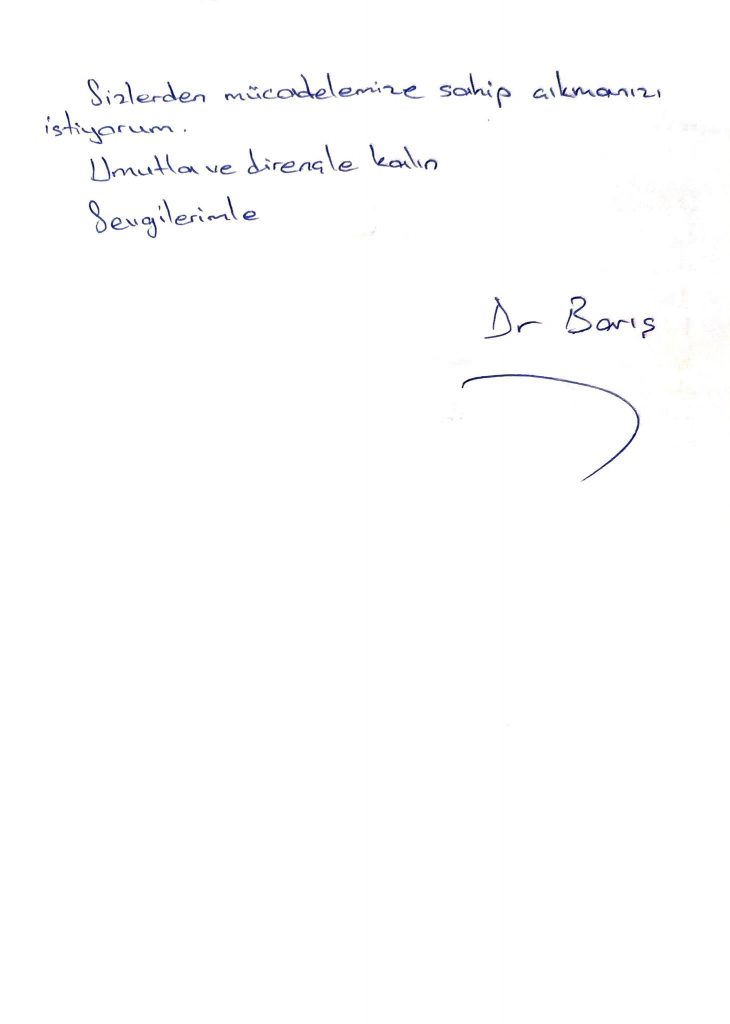 Sizlerden mücadelemize sahip çıkmanızı
istiyorum.
Umutla ve dirençle kalın
Sevgilerimle
Dr Barış